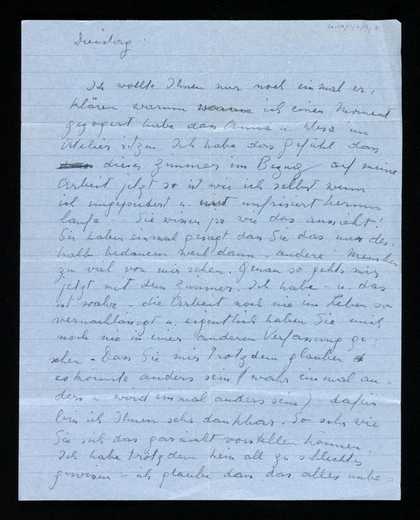 Dienstag
Ich wollte Ihnen nur noch einmal er-
klären warum ich einen Moment
gezögert habe dass Anna u. im
Atelier sitzen. Ich habe das Gefühl dass
dieses Zimmer im Bezug auf meine
Arbeit jetzt so ist wie ich selbst wenn
ich ungepudert u. unfrisiert herum
laufe. Sie wissen ja wie das aussieht!
Sie haben einmal gesagt dass Sie das nur des-
halb bedauern weil dann andere Menschen
zu viel von mir sehen. Genau so gehts mir
jetzt mit dem Zimmer. Ich habe - u. das
ist wahr - die Arbeit noch nie im Leben so
vernachlässigt u. eigentlich haben Sie mich
noch nie in einer anderen Verfassung ge-
sehen. Dass Sie mir trotzdem glauben
es könnte anders sein (wahr einmal an-
ders u. wird einmal anders sein) dafür
bin ich Ihnen sehr dankbar. So sehr wie
Sie sich das gar nicht vorstellen können.
Ich habe trotzdem kein all zu schlechtes
gewissen - ich glaube dass das alles